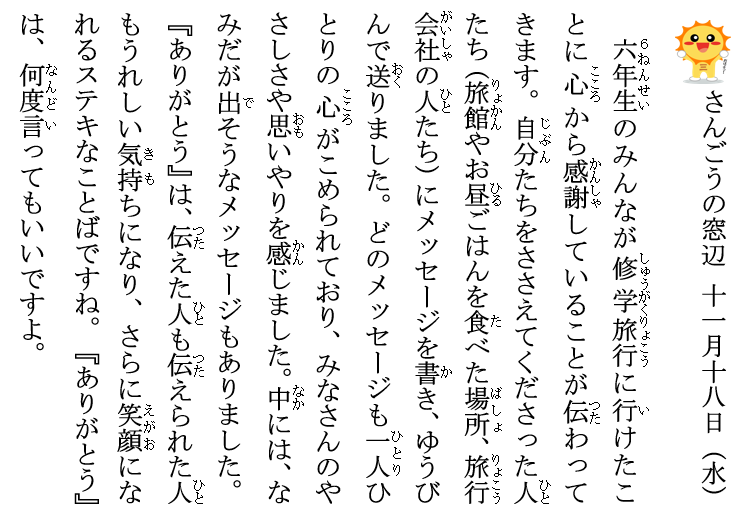 さんごうの窓辺 十一月十八日（水）
六年生のみんなが修学旅行に行けたこ
とに心から感謝していることが伝わって
きます。自分たちをささえてくださった人
たち（旅館やお昼ごはんを食べた場所、旅行
会社の人たち）にメッセージを書き、ゆうび
んで送りました。どのメッセージも一人ひ
とりの心がこめられており、みなさんのや
さしさや思いやりを感じました。中には、な
みだが出そうなメッセージもありました。
『ありがとう』は、伝えた人も伝えられた人
もうれしい気持ちになり、さらに笑顔にな
れるステキなことばですね。『ありがとう』
は、何度言ってもいいですよ。